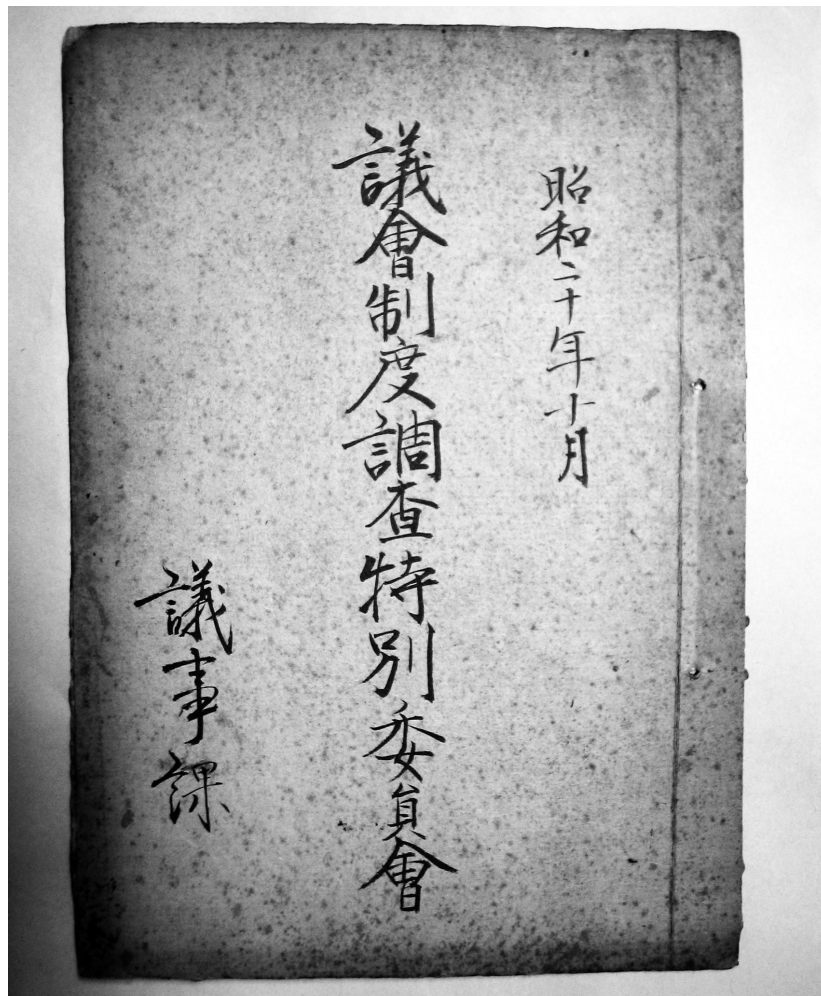 昭和二十年十月
議會制度調査特別委員會
議事課